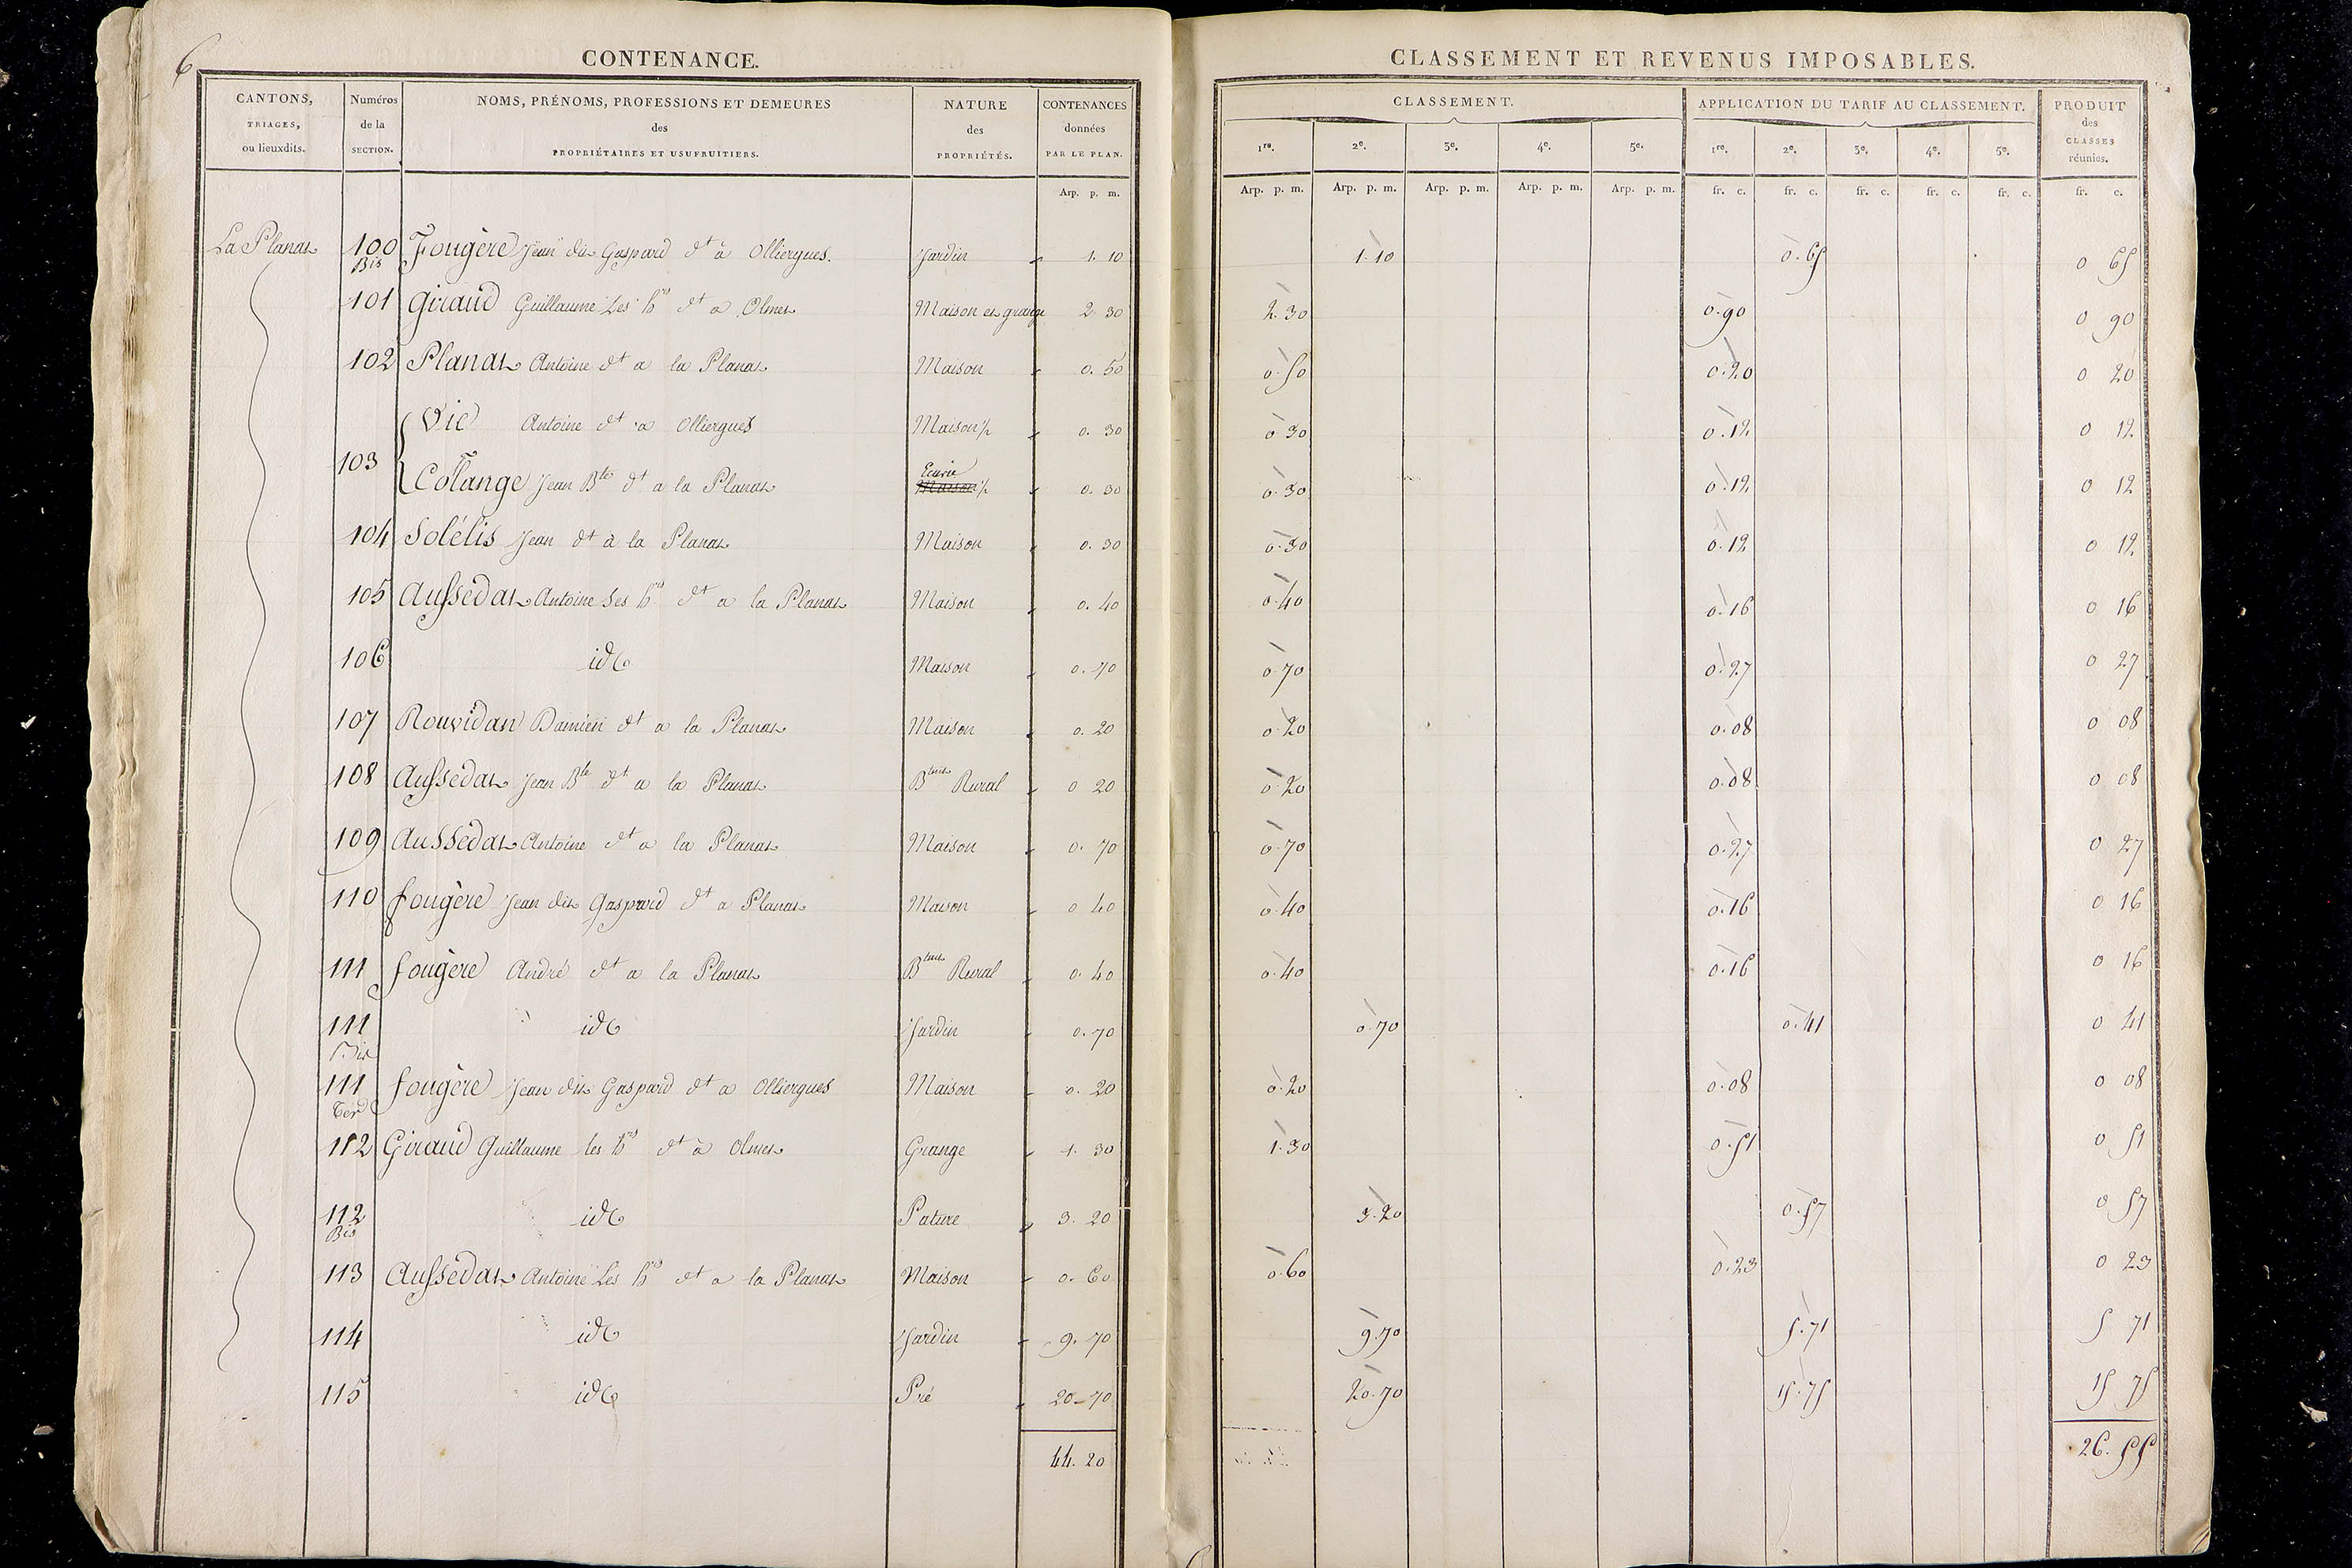 6
CONTENANCE.
CANTONS, TRIAGES, ou lieuxdits. | Numéros de la SECTION. | NOMS, PRÉNOMS, PROFESSIONS ET DEMEURES des PROPRIÉTAIRES ET USUFRUITIERS. | NATURE des PROPRIÉTÉS. | CONTENANCES données PAR LE PLAN.
Arp. p. m.
CLASSEMENT ET REVENUS IMPOSABLES.
CLASSEMENT. | APPLICATION DU TARIF AU CLASSEMENT. | PRODUIT des CLASSES réunies.
1re. 2e. 3e. 4e. 5e. 1re. 2e. 3e. 4e. 5e.
Arp. p. m. Arp. p. m. Arp. p. m. Arp. p. m. Arp. p. m. fr. c. fr. c. fr. c. fr. c. fr. c. fr. c.
La Planat 100 Bis Fougère Jean dit Gaspard dt à Olliergues. Jardin 1. 10 1.10 0.65 0 65
101 Giraud Guillaume Les hrs dt a Olmet Maison et grange 2 30 2.30 0.90 0 90
102 Planat Antoine dt a la Planat Maison 0. 50 0.50 0.20 0 20
103 Vic Antoine dt a Olliergues Maison p 0. 30 0.30 0.12 0 12
Collange Jean Bte dt a la Planat Ecurie Maison p 0. 30 0.30 0.12 0 12
104 Solélis Jean dt à la Planat Maison 0. 30 0.30 0.12 0 12
105 Aussedat Antoine Les hrs dt a la Planat Maison 0. 40 0.40 0.16 0 16
106 id Maison 0. 70 0.70 0.27 0 27
107 Rouvidan Damien dt a la Planat Maison 0. 20 0.20 0.08 0 08
108 Aussedat Jean Bte dt a la Planat Btiment Rural 0 20 0.20 0.08 0 08
109 Aussedat Antoine dt a la Planat Maison 0. 70 0.70 0.27 0 27
110 fougère Jean dit Gaspard dt a Planat Maison 0 40 0.40 0.16 0 16
111 fougère André dt a la Planat Btiment Rural 0. 40 0.40 0.16 0 16
111 Bis id Jardin 0. 70 0.70 0.41 0 41
111 Ter fougère Jean dit Gaspard dt a Olliergues Maison 0. 20 0.20 0.08 0 08
112 Giraud Guillaume les hrs dt à Olmet Grange 1. 30 1.30 0.51 0 51
112 Bis id Pature 3. 20 3.20 0.57 0 57
113 Aussedat Antoine Les hrs dt a la Planat Maison 0. 60 0.60 0.23 0 23
114 id Jardin 9. 70 9.70 5.71 5 71
115 id Pré 20-70 20.70 15.75 15 75
44. 20 26. 55